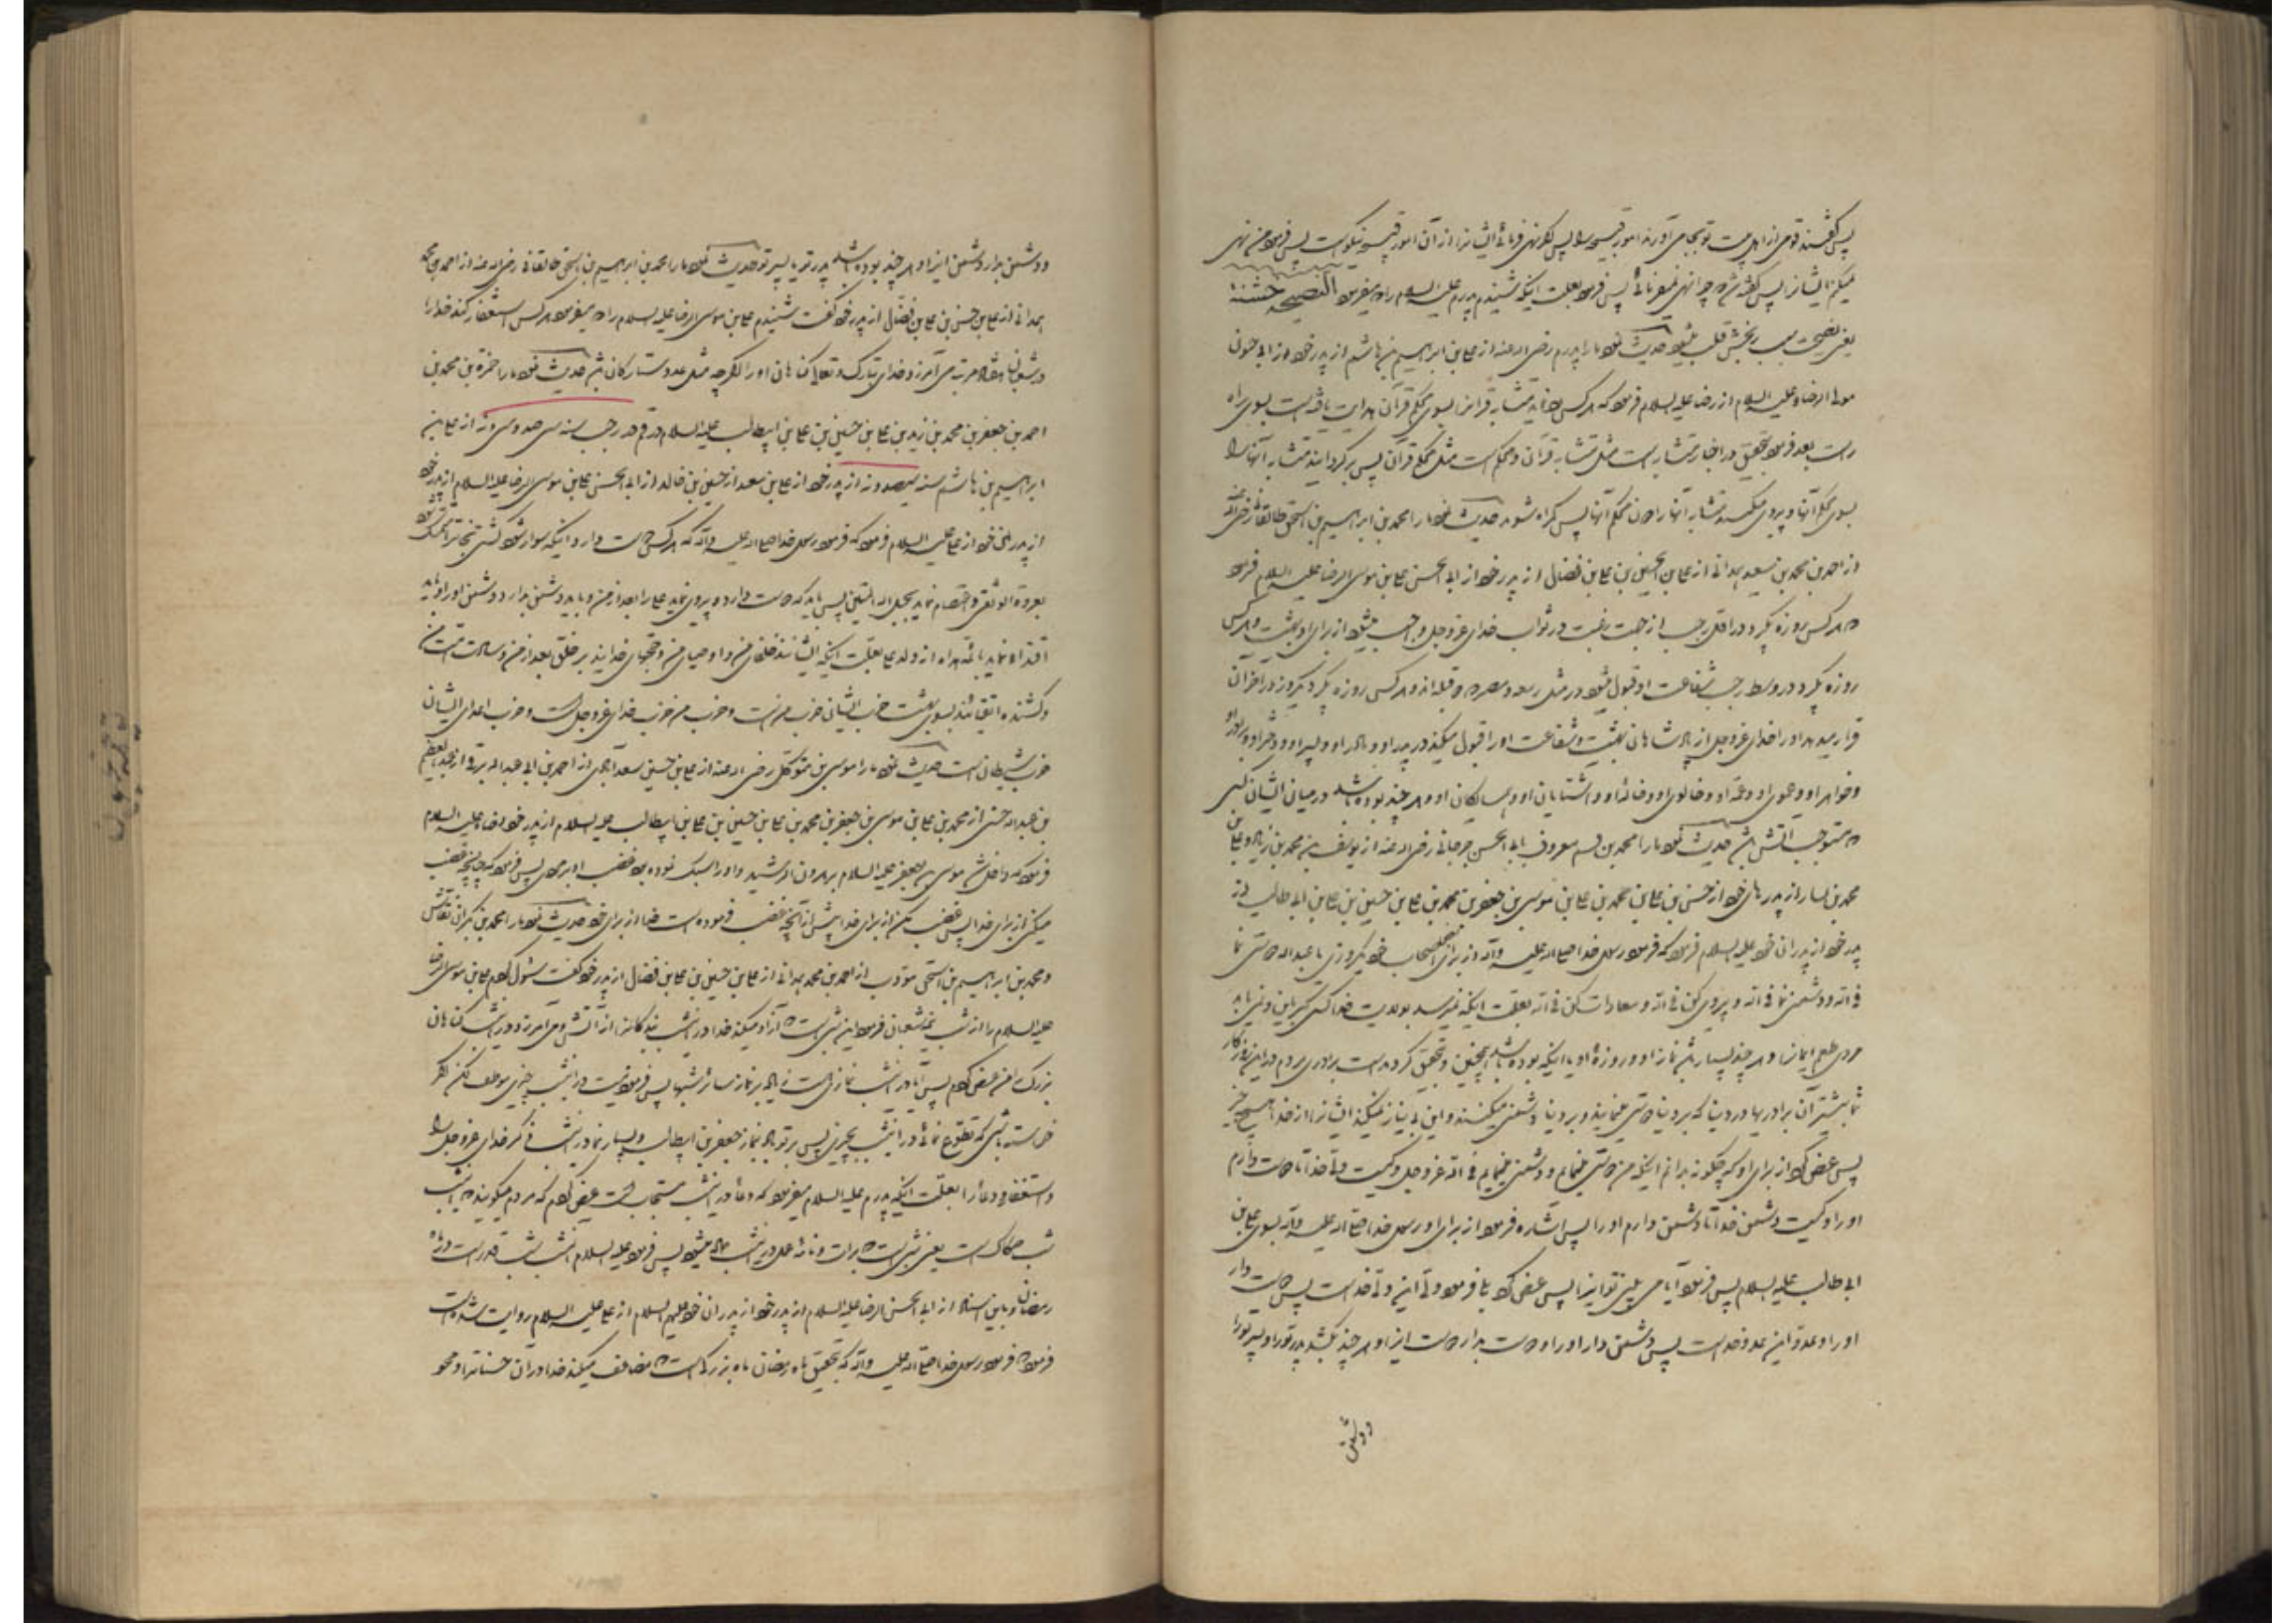 پس گفتند قومی از اهل بیت تو بجا می آورند امور قبیحه را پس اگر نهی فرمائی ایشانرا از آن امور قبیحه نیکوست پس فرمود من نهی
نمیکنم ایشانرا پس گفته شد چرا نهی نمیفرمائی پس فرمود بعلت اینکه شنیدم پدرم علیه السلام را که میفرمود النصیحة خشنة
یعنی نصیحت سبب رنجش قلب میشود حدیث نمود ما را پدرم رضی اله عنه از علی بن ابراهیم بن هاشم از پدر خود از ابی حیون
مولا الرضا علیه السلام از رضا علیه السلام فرمود که هر کس رد نماید متشابه قرانرا بسوی محکم قرآن هدایت یافته است بسوی راه
راست بعد فرمود بتحقیق در اخبار ما متشابه است مثل متشابه قرآن و محکم است مثل محکم قرآن پس برگردانید متشابه آنها را
بسوی محکم آنها و پیروی مکنید متشابه آنها را بدون محکم آنها پس گمراه شوید حدیث نمود ما را محمد بن ابراهیم بن اسحق طالقانی رضی اله عنه
از احمد بن محمد بن سعید همدانی از علی بن الحسین بن علی بن فضال از پدر خود از ابی الحسن علی بن موسی الرضا علیه السلام فرمود
که هر کس روزه بگیرد در اول رجب از جهت رغبت در ثواب خدای عزوجل واجب میشود از برای او بهشت و هر کس
روزه بگیرد در وسط رجب شفاعت او قبول میشود در مثل ربیعه و مضر که دو قبیله اند و هر کس روزه بگیرد یکروز در اخر آن
قرار میدهد او را خدای عزوجل از پادشاهان بهشت و شفاعت او را قبول میکند در پدر او و مادر او و پسر او و دختر او و برادر او
و خواهر او و عموی او و عمه او و خالوی او و خاله او و آشنایان او و همسایگان او و هر چند بوده باشد در میان ایشان کسی
که مستوجب آتش باشد حدیث نمود ما را محمد بن قاسم معروف بابی الحسن جرجانی رضی اله عنه از یوسف بن محمد بن زیاد و علی بن
محمد بن یسار از پدرهای خود از حسن بن علی بن محمد بن علی بن موسی بن جعفر بن محمد بن علی بن حسین بن علی بن ابی طالب از
پدر خود از پدران خود علیه السلام فرمود که فرمود رسول خدا صلی اله علیه وآله از برای بعضی اصحاب خود یکروزی یا عبداله دوستی نما
فی اله و دشمنی نما فی اله و پیروی کن فی اله و معادات کن فی اله بعلت اینکه نمیرسد بولایت خدا کسی مگر باین و نمی یابد
مردی طعم ایمانرا و هر چند بسیار باشد نماز او و روزه او یا اینکه بوده باشد همچنین و بتحقیق گردیده است برادری مردم در این روزگار
شما بیشتر آن برادریها در دنیا که بر دنیا دوستی مینمایند و بر دنیا دشمنی میکنند و این بی نیاز نمیکند ایشانرا از خدا هیچ چیز
پس عرض کرد از برای او که چگونه بدانم اینکه من دوستی مینمایم و دشمنی مینمایم فی اله عزوجل و کیست ولی خدا تا دوست دارم
او را و کیست دشمن خدا تا دشمن دارم او را پس اشاره فرمود از برای او رسول خدا صلی اله علیه وآله بسوی علی بن
ابی طالب علیه السلام پس فرمود آیا می بینی تو اینرا پس عرض کرد بلی فرمود ولی این ولی خداست پس دوست دار
او را و عدو این عدو خداست پس دشمن دار او را و دوست بدار دوست اینرا و هر چند بکشد پدر تو را و پسر تو را
و دشمن
و دشمن بدار دشمن اینرا و هر چند بوده باشد پدر تو یا پسر تو حدیث نمود ما را محمد بن ابراهیم بن اسحق طالقانی رضی اله عنه از احمد بن محمد
همدانی از علی بن حسن بن علی بن فضال از پدر خود گفت شنیدم علی بن موسی الرضا علیه السلام را که میفرمود هر کس استغفار کند خدا را
در شعبان هفتاد مرتبه می آمرزد خدای تبارک و تعالی گناهان او را اگر چه مثل عدد ستارگان باشد حدیث نمود ما را حمزه بن محمد بن
احمد بن جعفر بن محمد بن زید بن علی بن حسین بن علی بن ابیطالب علیه السلام در قم در رجب سنه سی صد و سی و نه از علی بن
ابراهیم بن هاشم سنه سیصد و نه از پدر خود از علی بن معبد از حسین بن خالد از ابی الحسن علی بن موسی الرضا علیه السلام از پدر خود
از پدران خود از علی علیه السلام فرمود که فرمود رسول خدا صلی اله علیه وآله که هر کس دوست دارد اینکه سوار شود کشتی نجاترا و تمسک شود
بعروة الوثقی و اعتصام نماید بحبل اله المتین پس باید که دوست دارد و پیروی نماید علی را بعد از من و باید دشمن بدارد دشمن او را و باید
اقتدا نماید بائمه هداه از ولد علی بعلت اینکه ایشانند خلفای من و اوصیای من و حجتهای خدایند بر خلق بعد از من و سادات امت من
و کشنده اتقیائند بسوی بهشت حزب ایشان حزب من است و حزب من حزب خدای عزوجل است و حزب اعدای ایشان
حزب شیطان است حدیث نمود ما را موسی بن متوکل رضی اله عنه از علی بن حسین سعدآبادی از احمد بن ابی عبداله برقی از عبدالعظیم
بن عبداله حسنی از محمد بن علی بن موسی بن جعفر بن محمد بن علی بن حسین بن علی بن ابیطالب علیه السلام از پدر خود رضا علیه السلام
فرمود که داخل شد موسی بن جعفر علیه السلام بهرون الرشید و او را سبک نموده بود غضب او بر مردی پس فرمود که چنانچه غضب
میکنی از برای خدا پس غضب مکن از برای خدا بیش از آنچه غضب فرموده است خدا از برای خود حدیث نمود ما را محمد بن بکران نقاش
و محمد بن ابراهیم بن اسحق مؤدب از احمد بن محمد همدانی از علی بن حسین بن علی بن فضال از پدر خود گفت سئوال کردم علی بن موسی الرضا
علیه السلام را از شب نیمه شعبان فرمود این شبی است که آزاد میکند خدا در این شب بندگانرا از آتش و می آمرزد در این شب گناهان
بزرگ را من عرض کردم پس آیا در این شب نمازی هست زیاد بر نماز سائر شبها پس فرمود نیست در این شب چیزی موظف لکن اگر
خواسته باشی که تطوع نمائی در این شب بچیزی پس بر تو باد بنماز جعفر بن ابیطالب و بسیار نما در این شب ذکر خدای عزوجل را
و استغفار و دعا را بعلت اینکه پدرم علیه السلام میفرمود که دعا در این شب مستجاب است عرض کردم که مردم میگویند که این شب
شب صکاک است یعنی شبی است که برات و نامه عمل در این شب داده میشود پس فرمود علیه السلام آنشب شب قدر است در ماه
رمضان و باین اسناد از ابی الحسن الرضا علیه السلام از پدر خود از پدران خود علیهم السلام از علی علیه السلام روایت شده است
فرمود که فرمود رسول خدا صلی اله علیه وآله که بتحقیق ماه رمضان ماه بزرگی است که مضاعف میکند خدا در آن حسناترا و محو